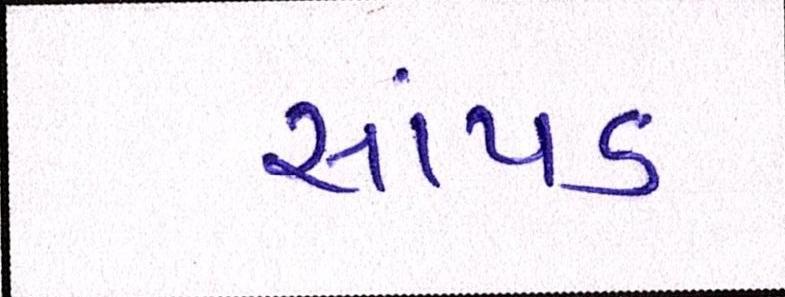 સાંપડ